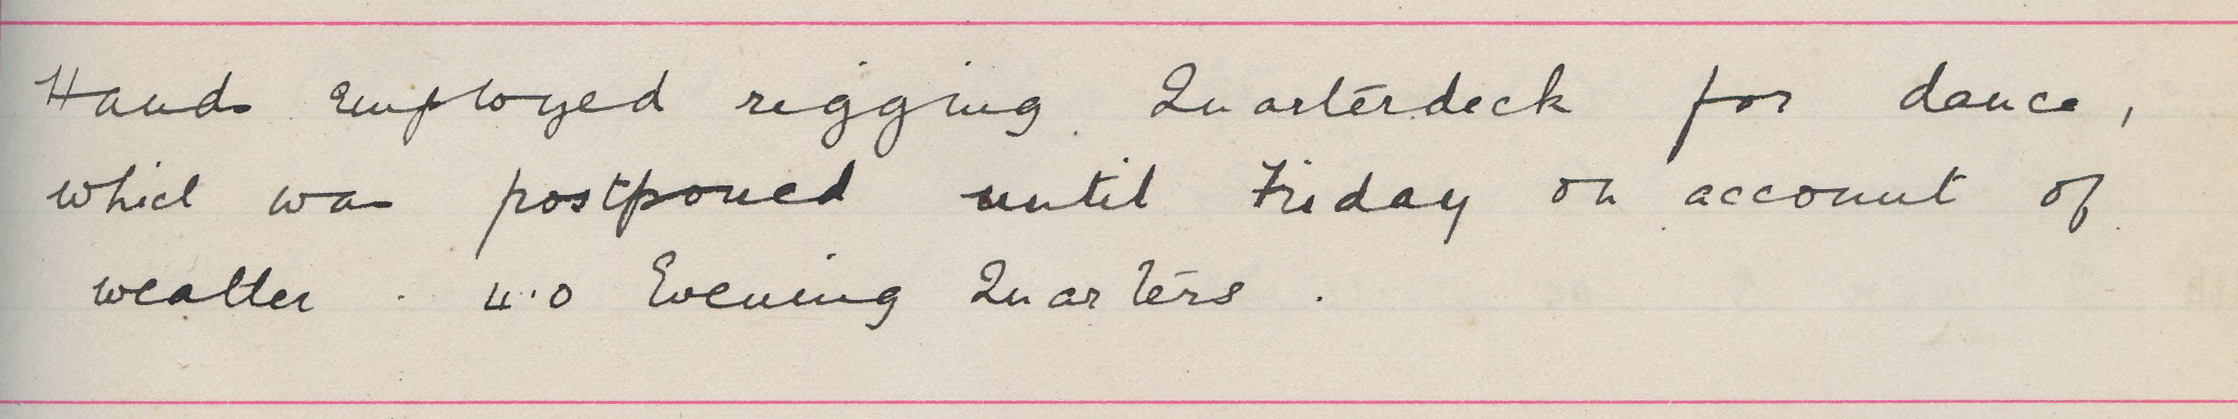 Hands employed rigging Quarterdeck for dance,
which was postponed until Friday on account of
weather . 4.0 Evening Quarters .